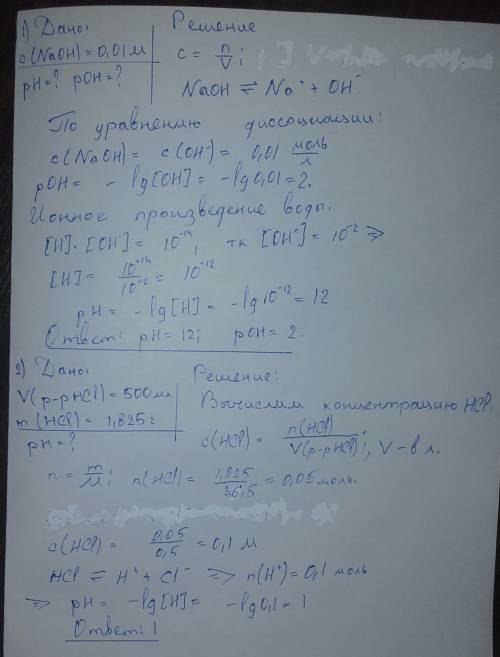 1) Дано: Решение
c(NaOH) = 0,01 м c = n/V;
pH = ? pOH = ?
NaOH ⇌ Na⁺ + OH⁻
По уравнению диссоциации:
c(NaOH) = c(OH⁻) = 0,01 моль/л
pOH = - lg[OH] = -lg 0,01 = 2.
Ионное произведение воды.
[H]·[OH⁻] = 10⁻¹⁴, тк [OH⁻] = 10⁻² ⇒
[H] = 10⁻¹⁴/10⁻² = 10⁻¹²
pH = -lg[H] = -lg 10⁻¹² = 12
Ответ: pH = 12; pOH = 2.
2) Дано: Решение:
V(р-рHCl) = 500 мл
Вычислим концентрацию HCl,
m(HCl) = 1,825 г
c(HCl) = n(HCl)/V(р-рHCl); V - в л.
pH = ?
n = m/M; n(HCl) = 1,825/36,5 = 0,05 моль.
c(HCl) = 0,05/0,5 = 0,1 М
HCl = H⁺ + Cl⁻ ⇒ n(H⁺) = 0,1 моль
⇒ pH = -lg[H] = -lg 0,1 = 1
Ответ: 1